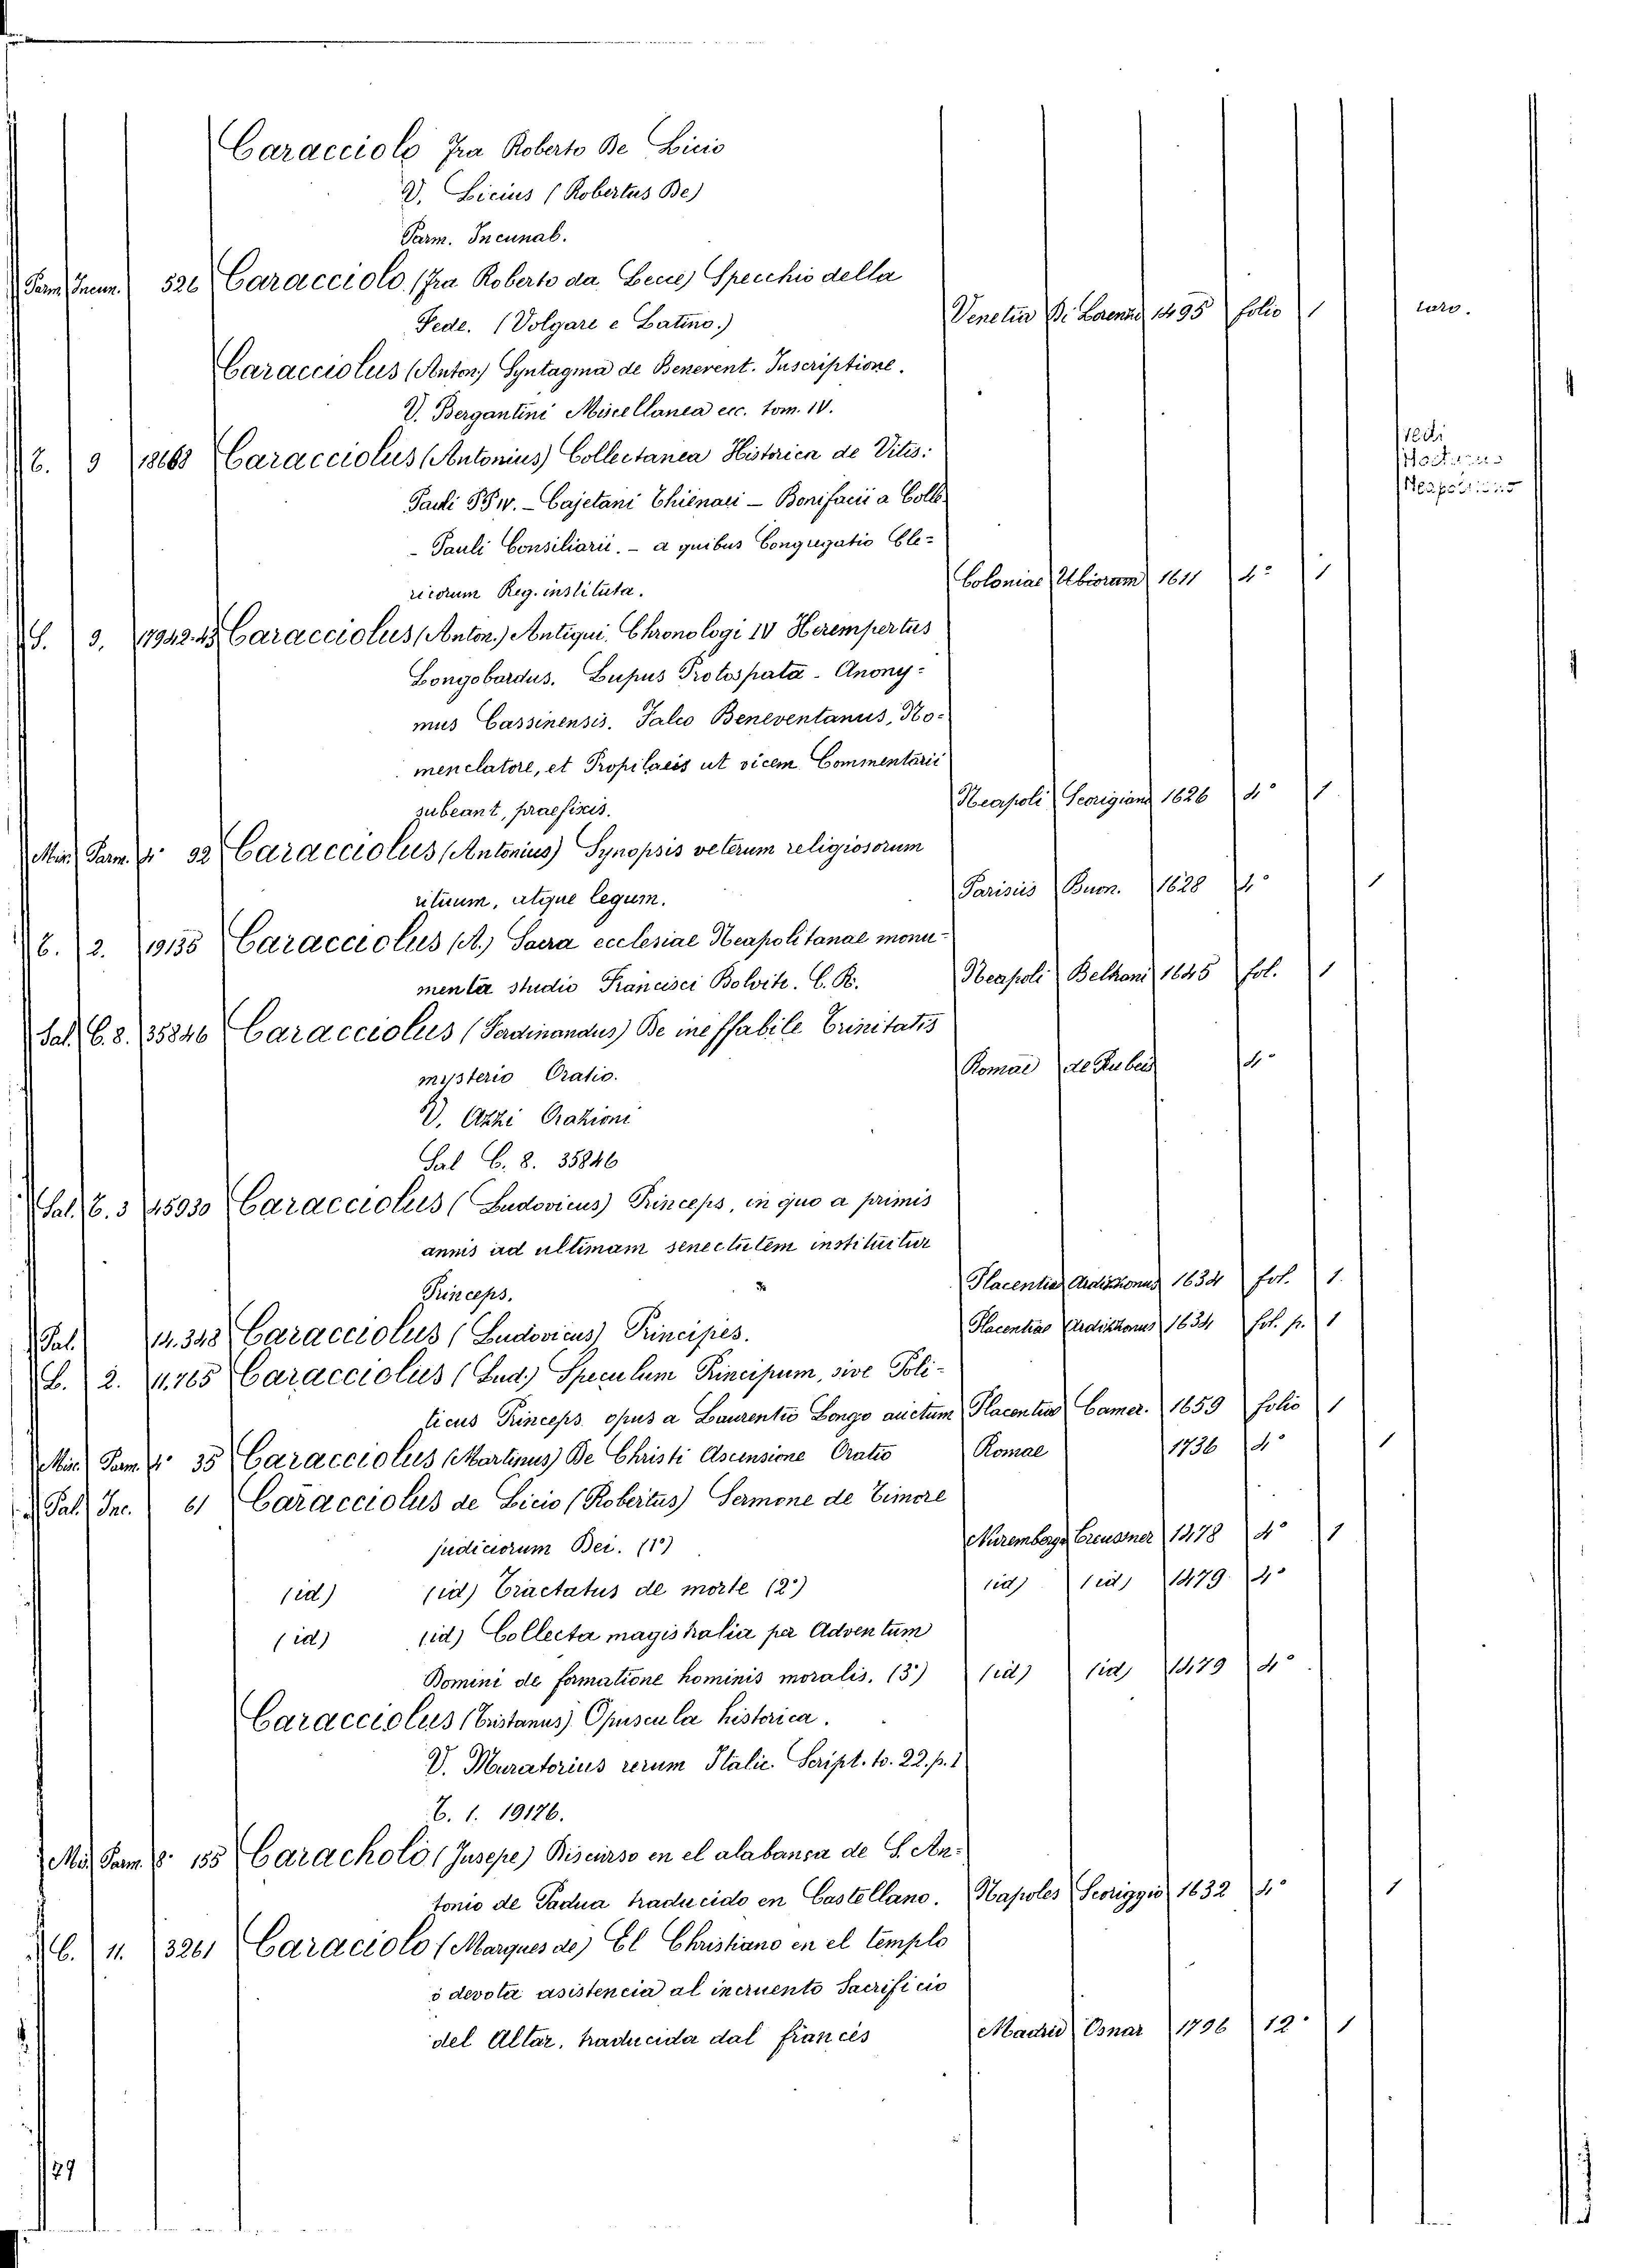 Caracciolo Fra Roberto De Licio
V. Licius (Robertus De)
Parm. Incunab.
Parm. Incun. 526 Caracciolo (Fra Roberto da Lecce) Specchio della
Fede. (Volgare e Latino.) Venetia De Lorenzo 1495 folio 1 raro.
Caracciolus (Anton.) Syntagma de Benevent. Inscriptione.
V. Bergantini Miscellanea ecc. tom. IV.
E. 9 18663 Caracciolus (Antonius) Collectanea Historica de Vitis: vedi
Pauli PP. IV. - Cajetani Thienaei - Bonifacii a Coll.
- Pauli Consiliarii. - a quibus Congregatio Cle-
ricorum Reg. instituta. Coloniae Ubiorum 1611 4° 1
S. 3. 17942.43 Caracciolus (Anton.) Antiqui Chronologi IV Herempertus
Longobardus. Lupus Protospata - Anony-
mus Cassinensis. Falco Beneventanus, No-
menclatore, et Propilaeis ut vicem Commentarii
subeant, praefixis. Neapoli Scorigiano 1626 4° 1
Min. Parm. 4° 92 Caracciolus (Antonius) Synopsis veterum religiosorum
rituum, atque legum. Parisiis Buon. 1628 4° 1
E. 2. 19135 Caracciolus (A.) Sacra ecclesiae Neapolitanae monu-
menta studio Francisci Bolvite. C. R. Neapoli Beltrano 1645 fol. 1
Sal. C. 8. 35846 Caracciolus (Ferdinandus) De ineffabile Trinitatis
mysterio Oratio. Romae de Rubeis 4°
V. Azzi Orazioni
Sal C. 8. 35846
Sal. E. 3 45930 Caracciolus (Ludovicus) Princeps, in quo a primis
annis ad ultimam senectutem instituitur
Princeps. Placentiae Ardizzonus 1634 fol. 1.
Pal. 14.348 Caracciolus (Ludovicus) Principes. Placentiae Ardizzonus 1634 fol. p. 1
L. 2. 11.765 Caracciolus (Lud.) Speculum Principum, sive Poli-
ticus Princeps opus a Laurentio Longo auctum Placentiae Camer. 1659 folio 1
Min. Parm. 4° 35 Caracciolus (Martinus) De Christi Ascensione Oratio Romae 1736 4° 1
Pal. Inc. 61 Caracciolus de Licio (Robertus) Sermone de Timore
judiciorum Dei. (1°) Nuremberga Creussner 1478 4° 1
(id) (id) Tractatus de morte (2°) (id) (id) 1479 4°
(id) (id) Collecta magistralia per Adventum
Domini de formatione hominis moralis. (3°) (id) (id) 1479 4°
Caracciolus (Tristanus) Opuscula historica.
V. Muratorius rerum Italic. Script. to. 22. p. 1
E. 1. 19176.
Mis. Parm. 8° 155 Caracholo (Jusepe) Discurso en el alabansa de S. An-
tonio de Padua traducido en Castellano. Napoles Scoriggio 1632 4° 1
C. 11. 3261 Caraciolo (Marques de) El Christiano en el templo
ò devota asistencia al incruento Sacrificio
del Altar, traducida dal francès Madrid Osnar 1796 12° 1
29